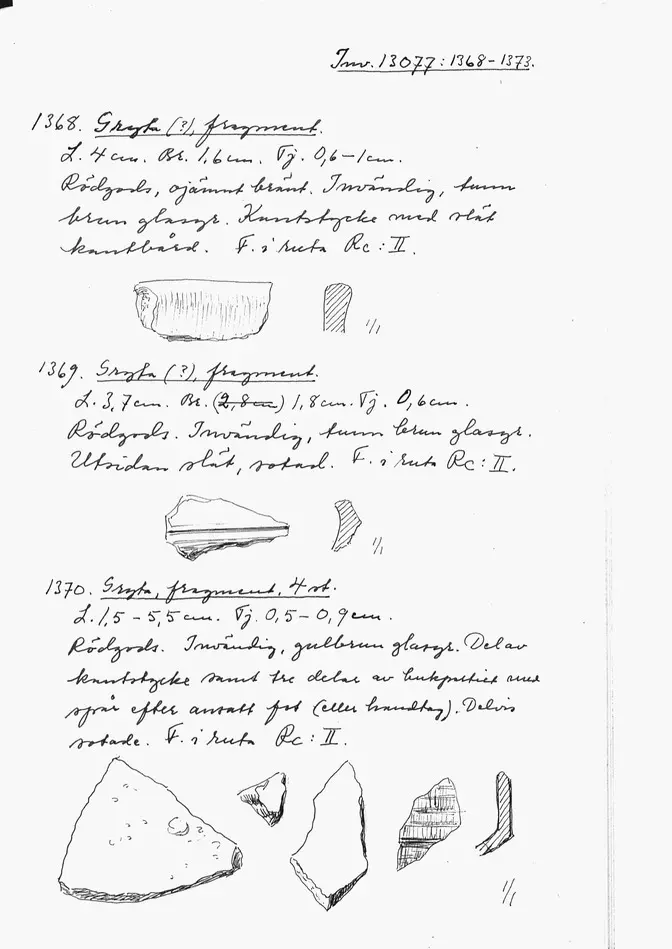 Inv. 13077:1368-1373.
1368. Gryta (?), fragment.
L. 4 cm. Br. 1,6 cm. Tj. 0,6-1 cm.
Rödgods, ojämnt bränt. Invändig, tunn
brun glasyr. Kantstycke med slät
kantbård. F. i ruta Rc:II.
1/1
1369. Gryta (?), fragment.
L. 3,7 cm. Br. (2,8 cm) 1,8 cm. Tj. 0,6 cm.
Rödgods. Invändig, tunn brun glasyr.
Utsidan slät, sotad. F. i ruta Rc:II.
1/1
1370. Gryta, fragment, 4 st.
L. 1,5 - 5,5 cm. Tj. 0,5 - 0,9 cm.
Rödgods. Invändig, gulbrun glasyr. Del av
kantstycke samt tre delar av bukpartiet med
spår efter ansatt fot (eller handtag). Delvis
sotade. F. i ruta Rc:II.
1/1